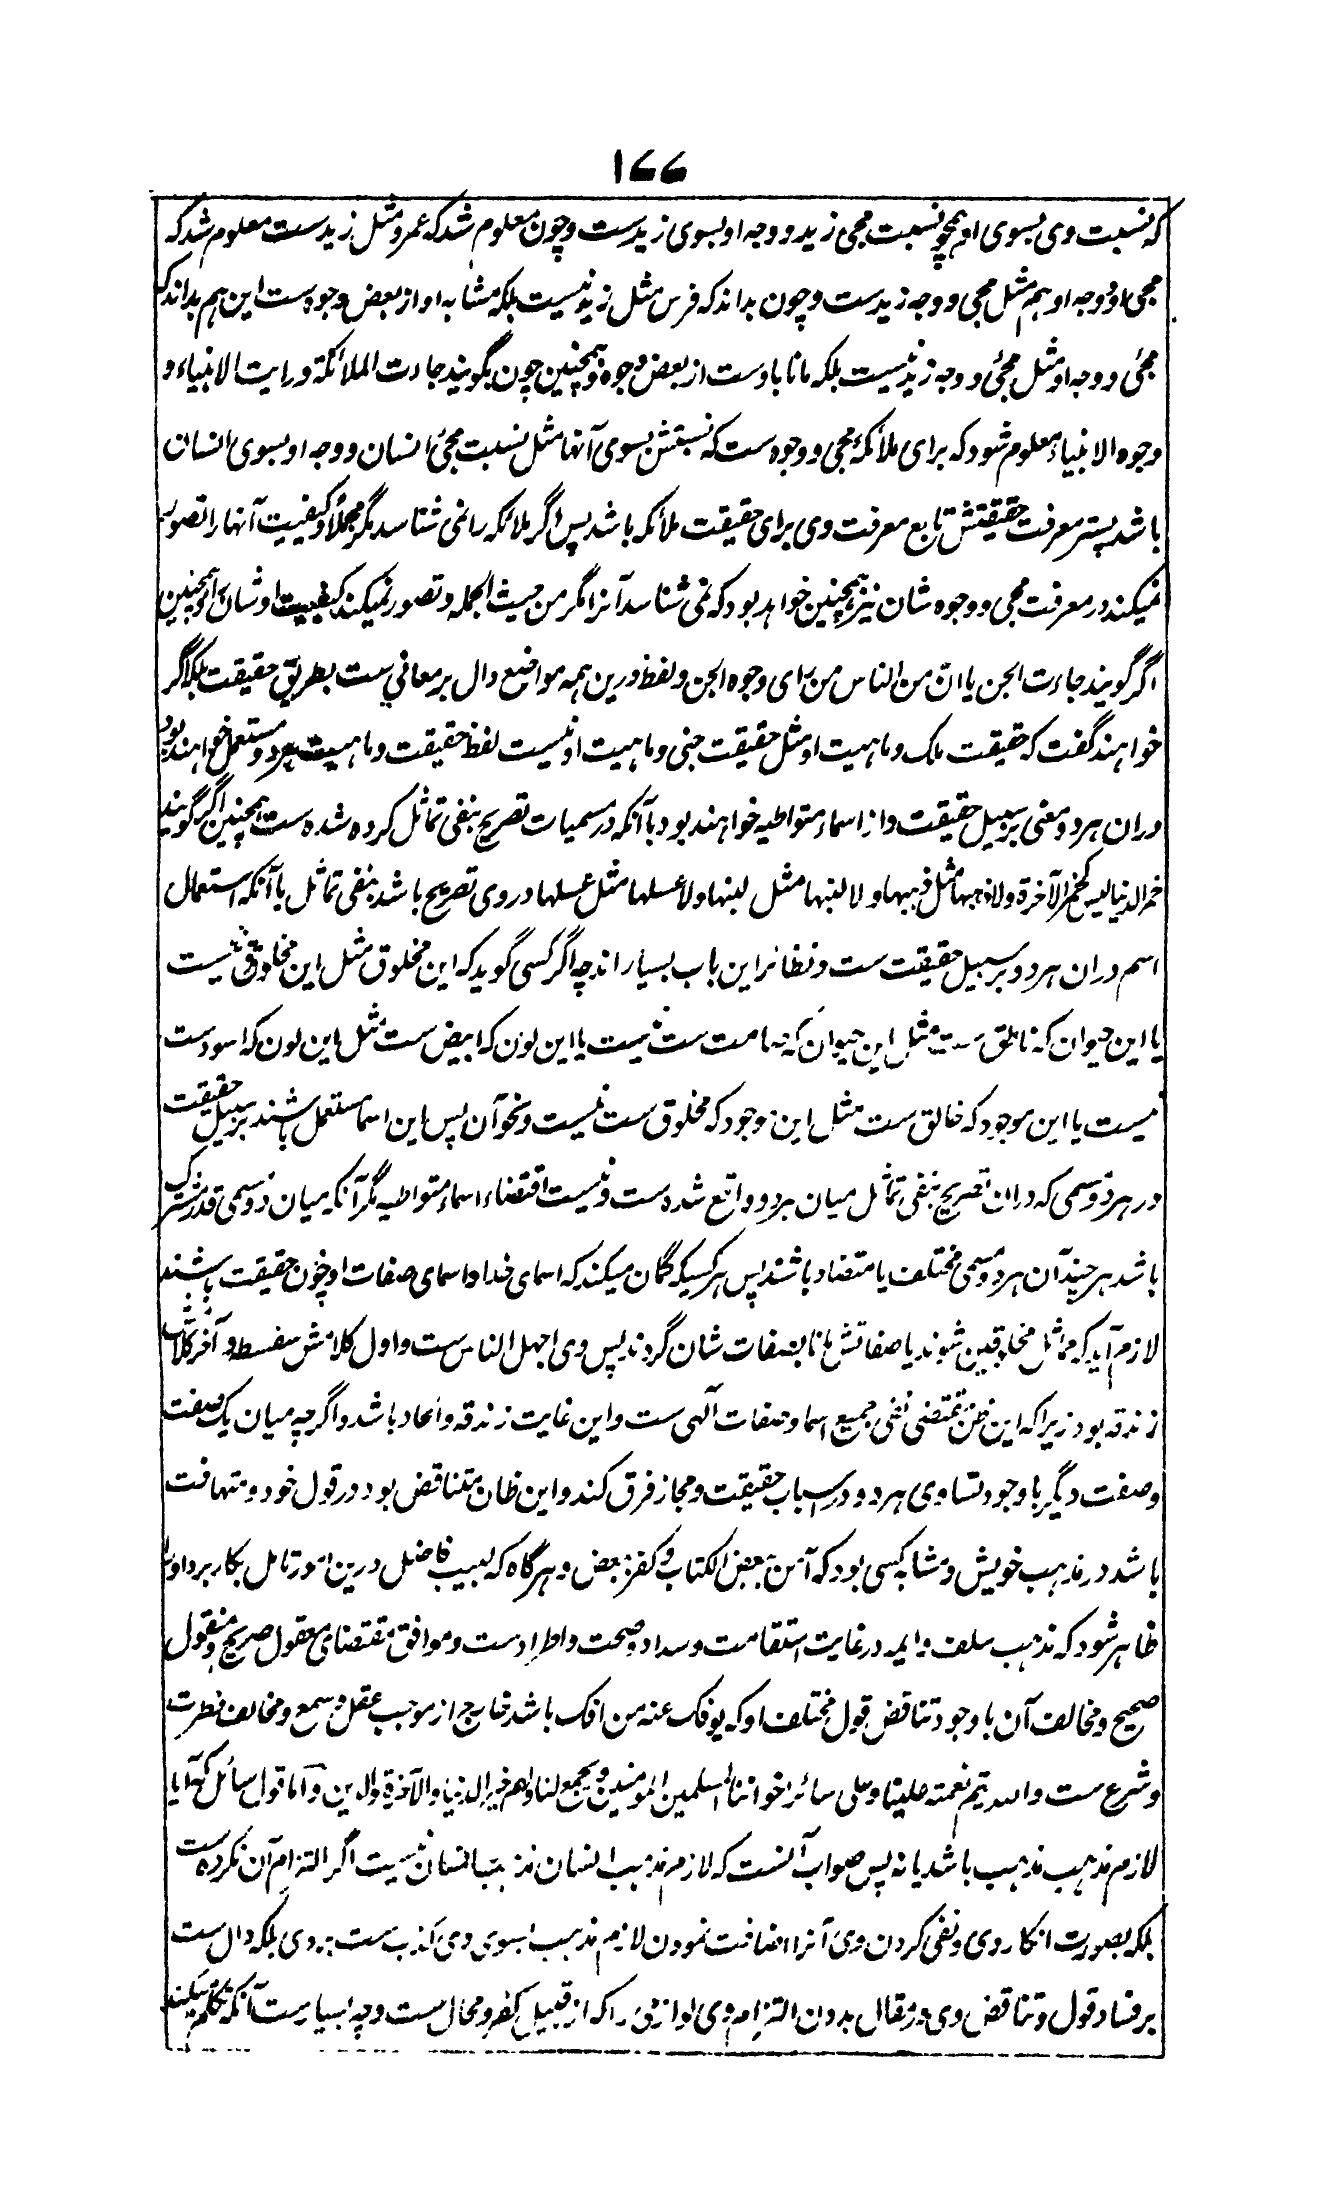 ۱۷۷
که نسبت وی بسوی او همچو نسبت مجی زید و وجه او بسوی زیدست و چون معلوم شد که عمرو مثل زیدست معلوم شد که
مجی او و وجه او هم مثل مجی و وجه زیدست و چون بداند که فرس مثل زید نیست بلکه مشابه او از بعض وجوه ست این هم بداند که
مجئ و وجه او مثل مجئ و وجه زید نیست بلکه مانا با وست از بعض وجوه و همچنین چون بگویند جاءت الملائکة و رایت الانبیاء و
وجوه الانبیاء معلوم شود که برای ملائکه مجی و وجوه ست که نسبتش بسوی آنها مثل نسبت مجئ انسان و وجه او بسوی انسان
باشد پستر معرفت حقیقتش تابع معرفت وی برای حقیقت ملائکه باشد پس اگر ملائکه را نمی شناسد مگر مجملاً و کیفیت آنها را تصور
نمیکند در معرفت مجی و وجوه شان نیز همچنین خواهد بود که نمی شناسد آنرا مگر من حیث الجمله و تصور نمیکند کیفیت او شان را و همچنین
اگر گویند جاءت الجن یا ان من الناس من رای وجوه الجن و لفظ درین همه مواضع دال بر معانی ست بطریق حقیقت بلکه اگر
خواهند گفت که حقیقت ملک و ماهیت او مثل حقیقت جنی و ماهیت او نیست لفظ حقیقت و ماهیت هر دو مستعمل خواهند بود
دران هر دو معنی بر سبیل حقیقت و از اسماء متواطیه خواهند بود با آنکه در مسمیات تصریح بنفی تماثل کرده شده ست همچنین اگر گویند
خمر الدنیا لیس کخمر الآخرة ولا ذهبها مثل ذهبها ولا لبنها مثل لبنها ولا عسلها مثل عسلها در وی تصریح باشد بنفی تماثل با آنکه استعمال
اسم دران هر دو بر سبیل حقیقت ست و نظائر این باب بسیار اند چه اگر کسی گوید که این مخلوق مثل این مخلوق نیست
یا این حیوان که ناطق ست مثل این حیوان که صامت ست نیست یا این لون که ابیض ست مثل این لون که اسودست
نیست یا این موجود که خالق ست مثل این وجود که مخلوق ست نیست و نحو آن پس این اسما مستعمل باشند بر سبیل حقیقت
در هر دو مسمی که دران تصریح بنفی تماثل میان هر دو واقع شده ست و نیست اقتضاء اسماء متواطیه مگر آنکه میان دو مسمی قدر مشترک
باشد هر چند آن هر دو مسمی مختلف یا متضاد باشند پس هر کسیکه گمان میکند که اسمای خدا و اسمای صفات او چون حقیقت باشند
لازم آید که مماثل مخلوقین شوند یا صفاتش مانا بصفات شان گردند پس وی اجهل الناس ست و اول کلامش سفسطه و آخر کلامش
زندقه بود زیرا که این ظن مقتضی نفی جمیع اسما و صفات آلهی ست و این غایت زندقه و الحاد باشد و اگر چه میان یک صفت
و صفت دیگر با وجود تساوی هر دو در اسباب حقیقت و مجاز فرق کند و این ظان متناقض بود در قول خود و متهافت
باشد در مذهب خویش و مشابه کسی بود که آمن ببعض الکتاب و کفر ببعض و هرگاه که لبیب فاضل درین امور تامل بکار برد او را
ظاهر شود که مذهب سلف و ایمه در غایت استقامت و سداد و صحت و اطرادست و موافق مقتضای معقول صریح و منقول
صحیح و مخالف آن با وجود تناقض قول مختلف او که یوفک عنه من افک باشد خارج از موجب عقل و سمع و مخالف فطرت
و شرع ست والله یتم نعمته علینا و علی سائر اخواننا المسلمین المومنین و یجمع لنا و لهم خیر الدنیا والآخرة والدین و اما قول سائل که آیا
لازم مذهب مذهب باشد یا نه پس صواب آنست که لازم مذهب انسان مذهب انسان نیست اگر التزام آن نکرده ست
بلکه بصورت انکار وی و نفی کردن وی آنرا اضافت نمودن لازم مذهب بسوی وی کذب ست بر وی بلکه دال ست
بر فساد قول و تناقض وی در مقال بدون التزام وی لوازمی را که از قبیل کفر و محال ست و چه بسیارست آنکه تکلم میکند